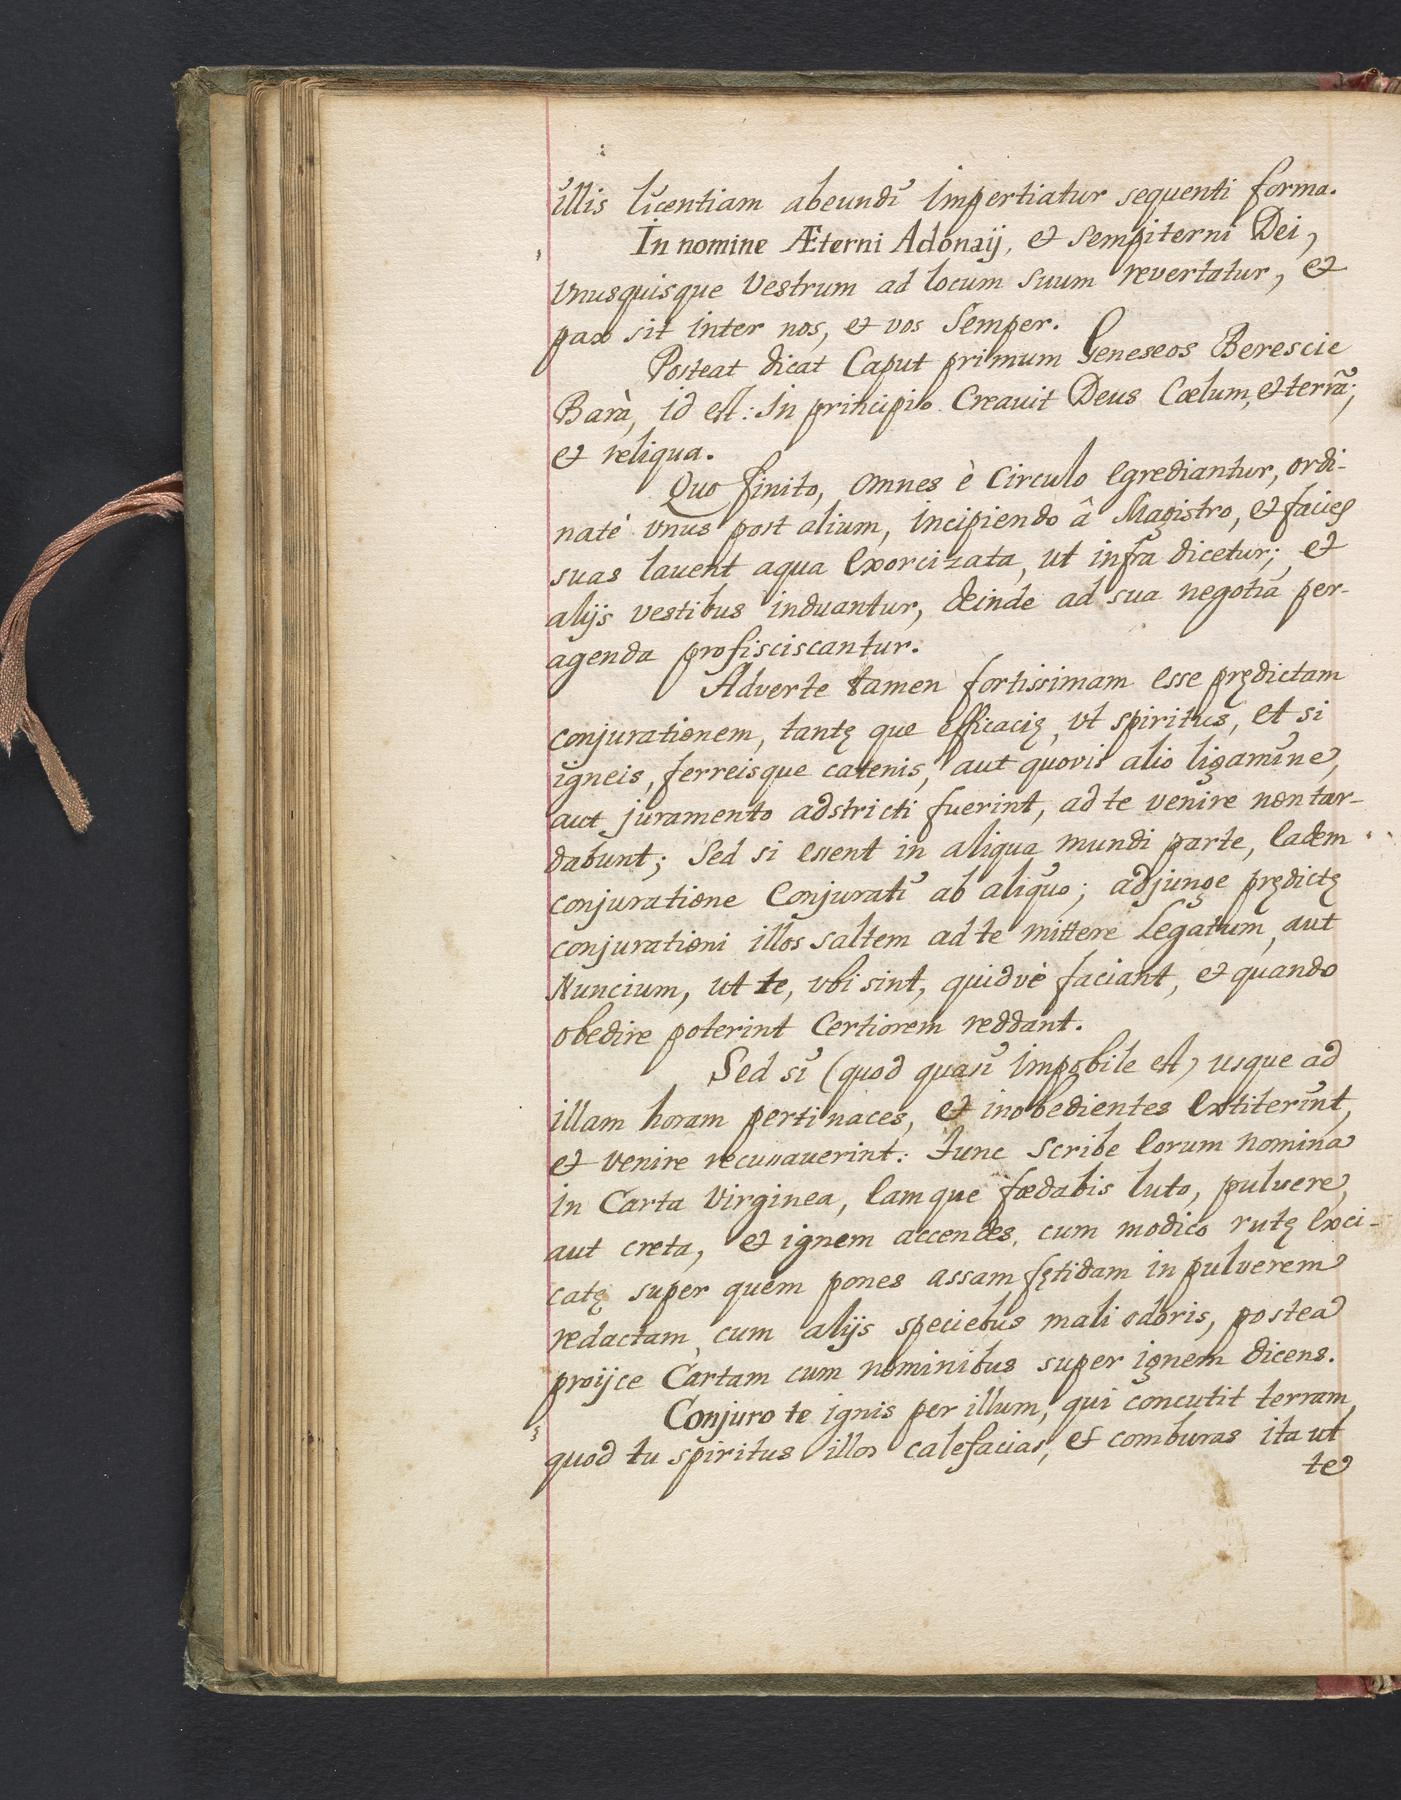 illis licentiam abeundi impertiatur sequenti forma.
In nomine Æterni Adonaij, et sempiterni Dei,
Vnusquisque Vestrum ad locum suum revertatur, et
pax sit inter nos, et vos semper.
Posteat dicat Caput primum Geneseos Berescie
Barà, id est: In principio Creauit Deus Cœlum, et terrã;
et reliqua.
Quo finito, omnes è Circulo egrediantur, ordi-
natè vnus post alium, incipiendo â Magistro, et facies
suas lauent aqua exorcizata, ut infra dicetur; et
alijs vestibus induantur, deinde ad sua negotia per-
agenda profisciscantur.
Adverte tamen fortissimam esse prędictam
conjurationem, tantę que efficacię, vt spiritus, et si
igneis, ferreisque catenis, aut quovis alio ligamine,
aut juramento adstricti fuerint, ad te venire non tar-
dabunt; Sed si essent in aliqua mundi parte, eadem
conjuratione Conjurati ab aliquo; adjunge prędictę
conjurationi illos saltem ad te mittere Legatum, aut
Nuncium, ut te, vbi sint, quidvè faciant, et quando
obedire poterint Certiorem reddant.
Sed si (quod quasi impobile est) usque ad
illam horam pertinaces, et inobedientes extiterint,
et venire recusauerint: tunc scribe eorum nomina
in Carta Virginea, eamque fœdabis luto, puluere,
aut creta, et ignem accendes, cum modico rutę exci-
catę super quem pones assam fętidam in pulverem
redactam, cum alijs speciebus mali odoris, postea
proijce Cartam cum nominibus super ignem dicens.
Conjuro te ignis per illum, qui concutit terram,
quod tu spiritus illos calefacias, et comburas ita ut
te